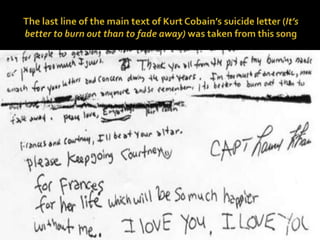 The last line of the main text of Kurt Cobain's suicide letter (It's
better to burn out than to fade away) was taken from this song
or people too much I guess. Thank you all from the pit of my burning nause
for your letters and concern during the past years. I'm too much of an erratic, moo
person anymore and so remember, its better to burn out than to
fade away. peace love, Empathy. Kurt Cobain
Frances and Courtney, I'll be at your altar.
please keep going Courtney
for Frances
for her life which will be so much happier
without me. I LOVE YOU, I LOVE YOU